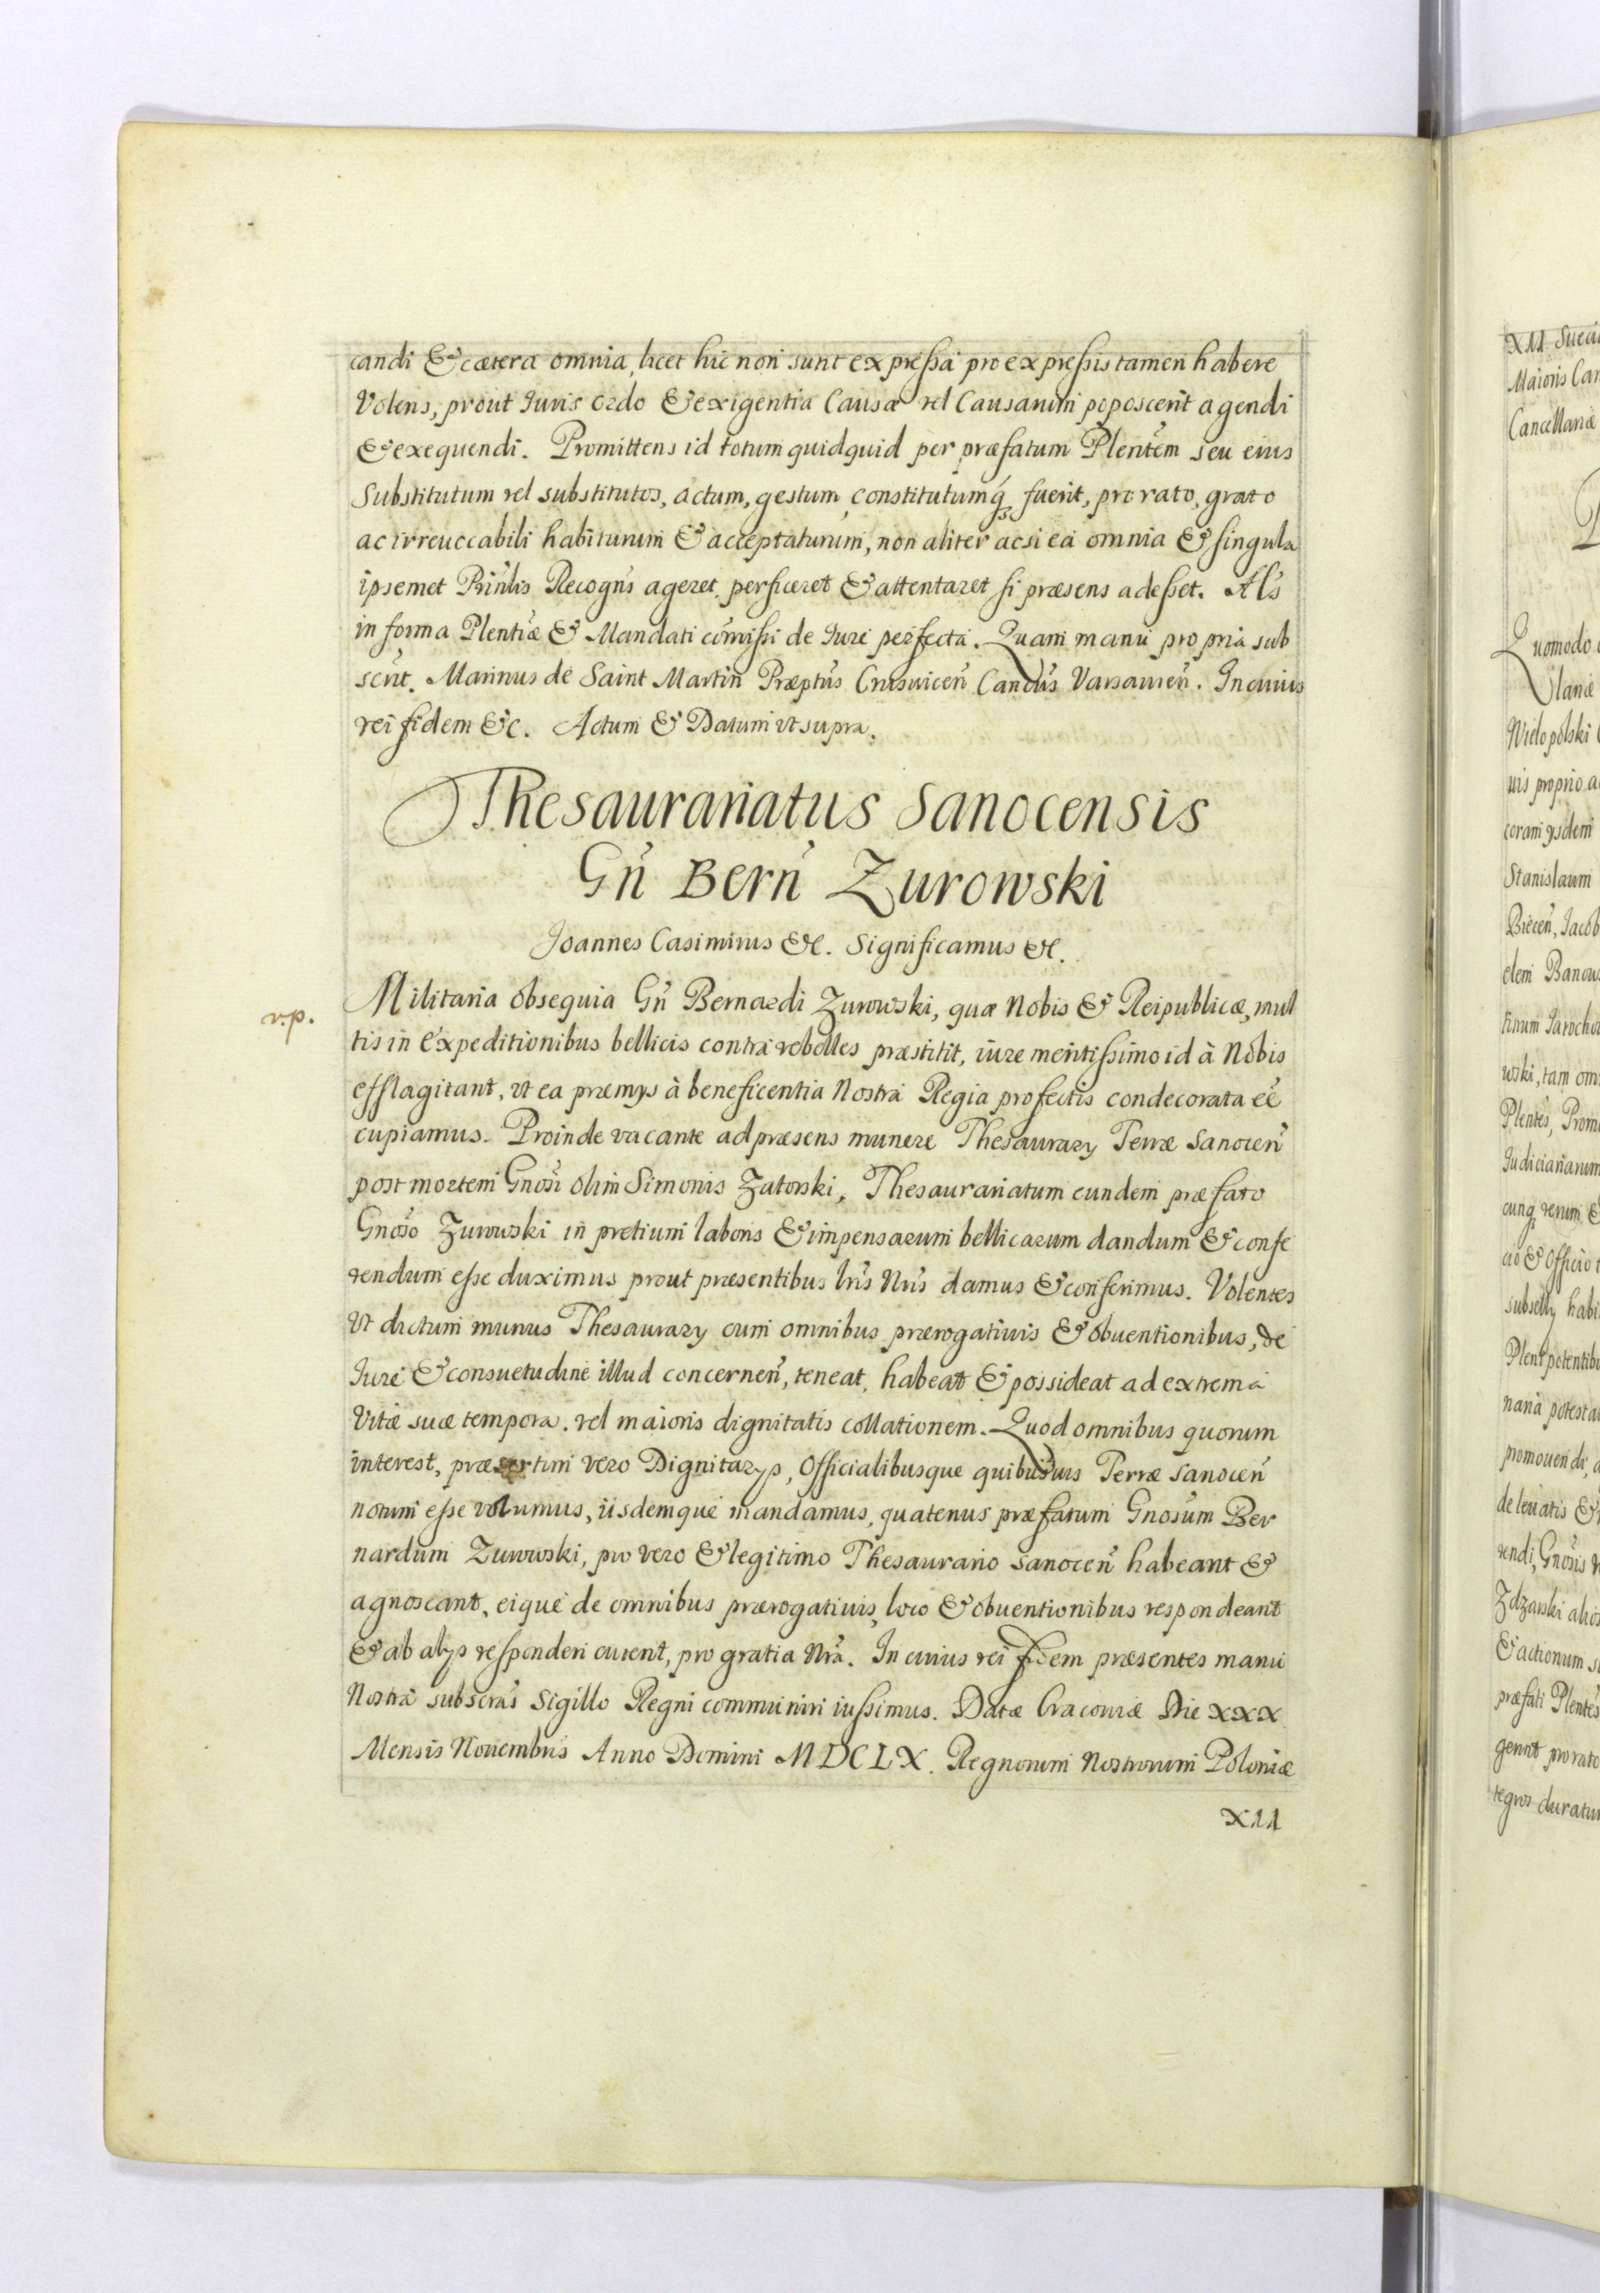 candi & cætera omnia, licet hic non sunt expressa pro expressis tamen habere
Volens, prout Iuris ordo & exigentia Causæ vel Causarum poposcerit agendi
& exequendi. Promittens id totum quidquid per præfatum Plentem seu eius
Substitutum vel substitutos, actum, gestum, constitutumq3 fuerit, pro rato, grato
ac irreuocabili habiturum & acceptaturum, non aliter acsi ea omnia & singula
ipsemet Prinlis Recogns ageret, perficeret & attentaret si præsens adesset. Als
in forma Plentiæ & Mandati comissi de Iure perfecta. Quam manu propria sub
scrit. Marinus de Saint Martin Præptus Crusuicen Candus Varsauien. In cuius
rei fidem &c. Actum & Datum vt supra.
Thesaurariatus Sanocensis
Gn Bern Zurowski
Joannes Casimirus &c. Significamus &c.
v.p.
Militaria obsequia Gn Bernardi Zurowski, quæ Nobis & Reipublicæ, mul
tis in expeditionibus bellicis contra rebelles præstitit, iure meritissimo id à Nobis
efflagitant, vt ea præmys à beneficentia Nostra Regia profectis condecorata ee
cupiamus. Proinde vacante ad præsens munere Thesaurary Terræ Sanocen
post mortem Gnosi olim Simonis Zatorski, Thesaurariatum eundem præfato
Gnoso Zurowski in pretium laboris & impensarum bellicarum dandum & confe
rendum esse duximus prout præsentibus lris Nris damus & conferimus. Volentes
Vt dictum munus Thesaurary cum omnibus prærogatiuis & obuentionibus, de
Iure & consuetudine illud concernen, teneat, habeat & possideat ad extrema
Vitæ suæ tempora, vel maioris dignitatis collationem. Quod omnibus quorum
interest, præsertim vero Dignitarys, Officialibusque quibusuis Terræ Sanocen
notum esse volumus, iisdemque mandamus, quatenus præfatum Gnosum Ber
nardum Zurowski, pro vero & legitimo Thesaurario Sanocen habeant &
agnoscant, eique de omnibus prærogatiuis, loco & obuentionibus respondeant
& ab alys responderi curent, pro gratia Nra. In cuius rei fidem præsentes manu
Nostra subscras Sigillo Regni communiri iussimus. Datæ Cracouiæ Die XXX
Mensis Nouembris Anno Domini MDCLX. Regnorum Nostrorum Poloniæ
XII
XII Sueci
Maioris Can
Cancellariæ
Quomodo
Vlanæ
Widopolski
uis proprio a
coram ysdem
Stanislaum
Biecen, Iacob
elem Banow
tinum Jarocho
wski, tam om
Plentes, Prom
Iudiciariarum
cunq3 rerum &
cio & Officio
subselly habi
Plent potentibu
naria potesta
promouendi, a
de leuatis &
rendi, Gnosis
Zdzarski alio
& actionum s
præfati Plentes
gerint pro rato
tegros duratu